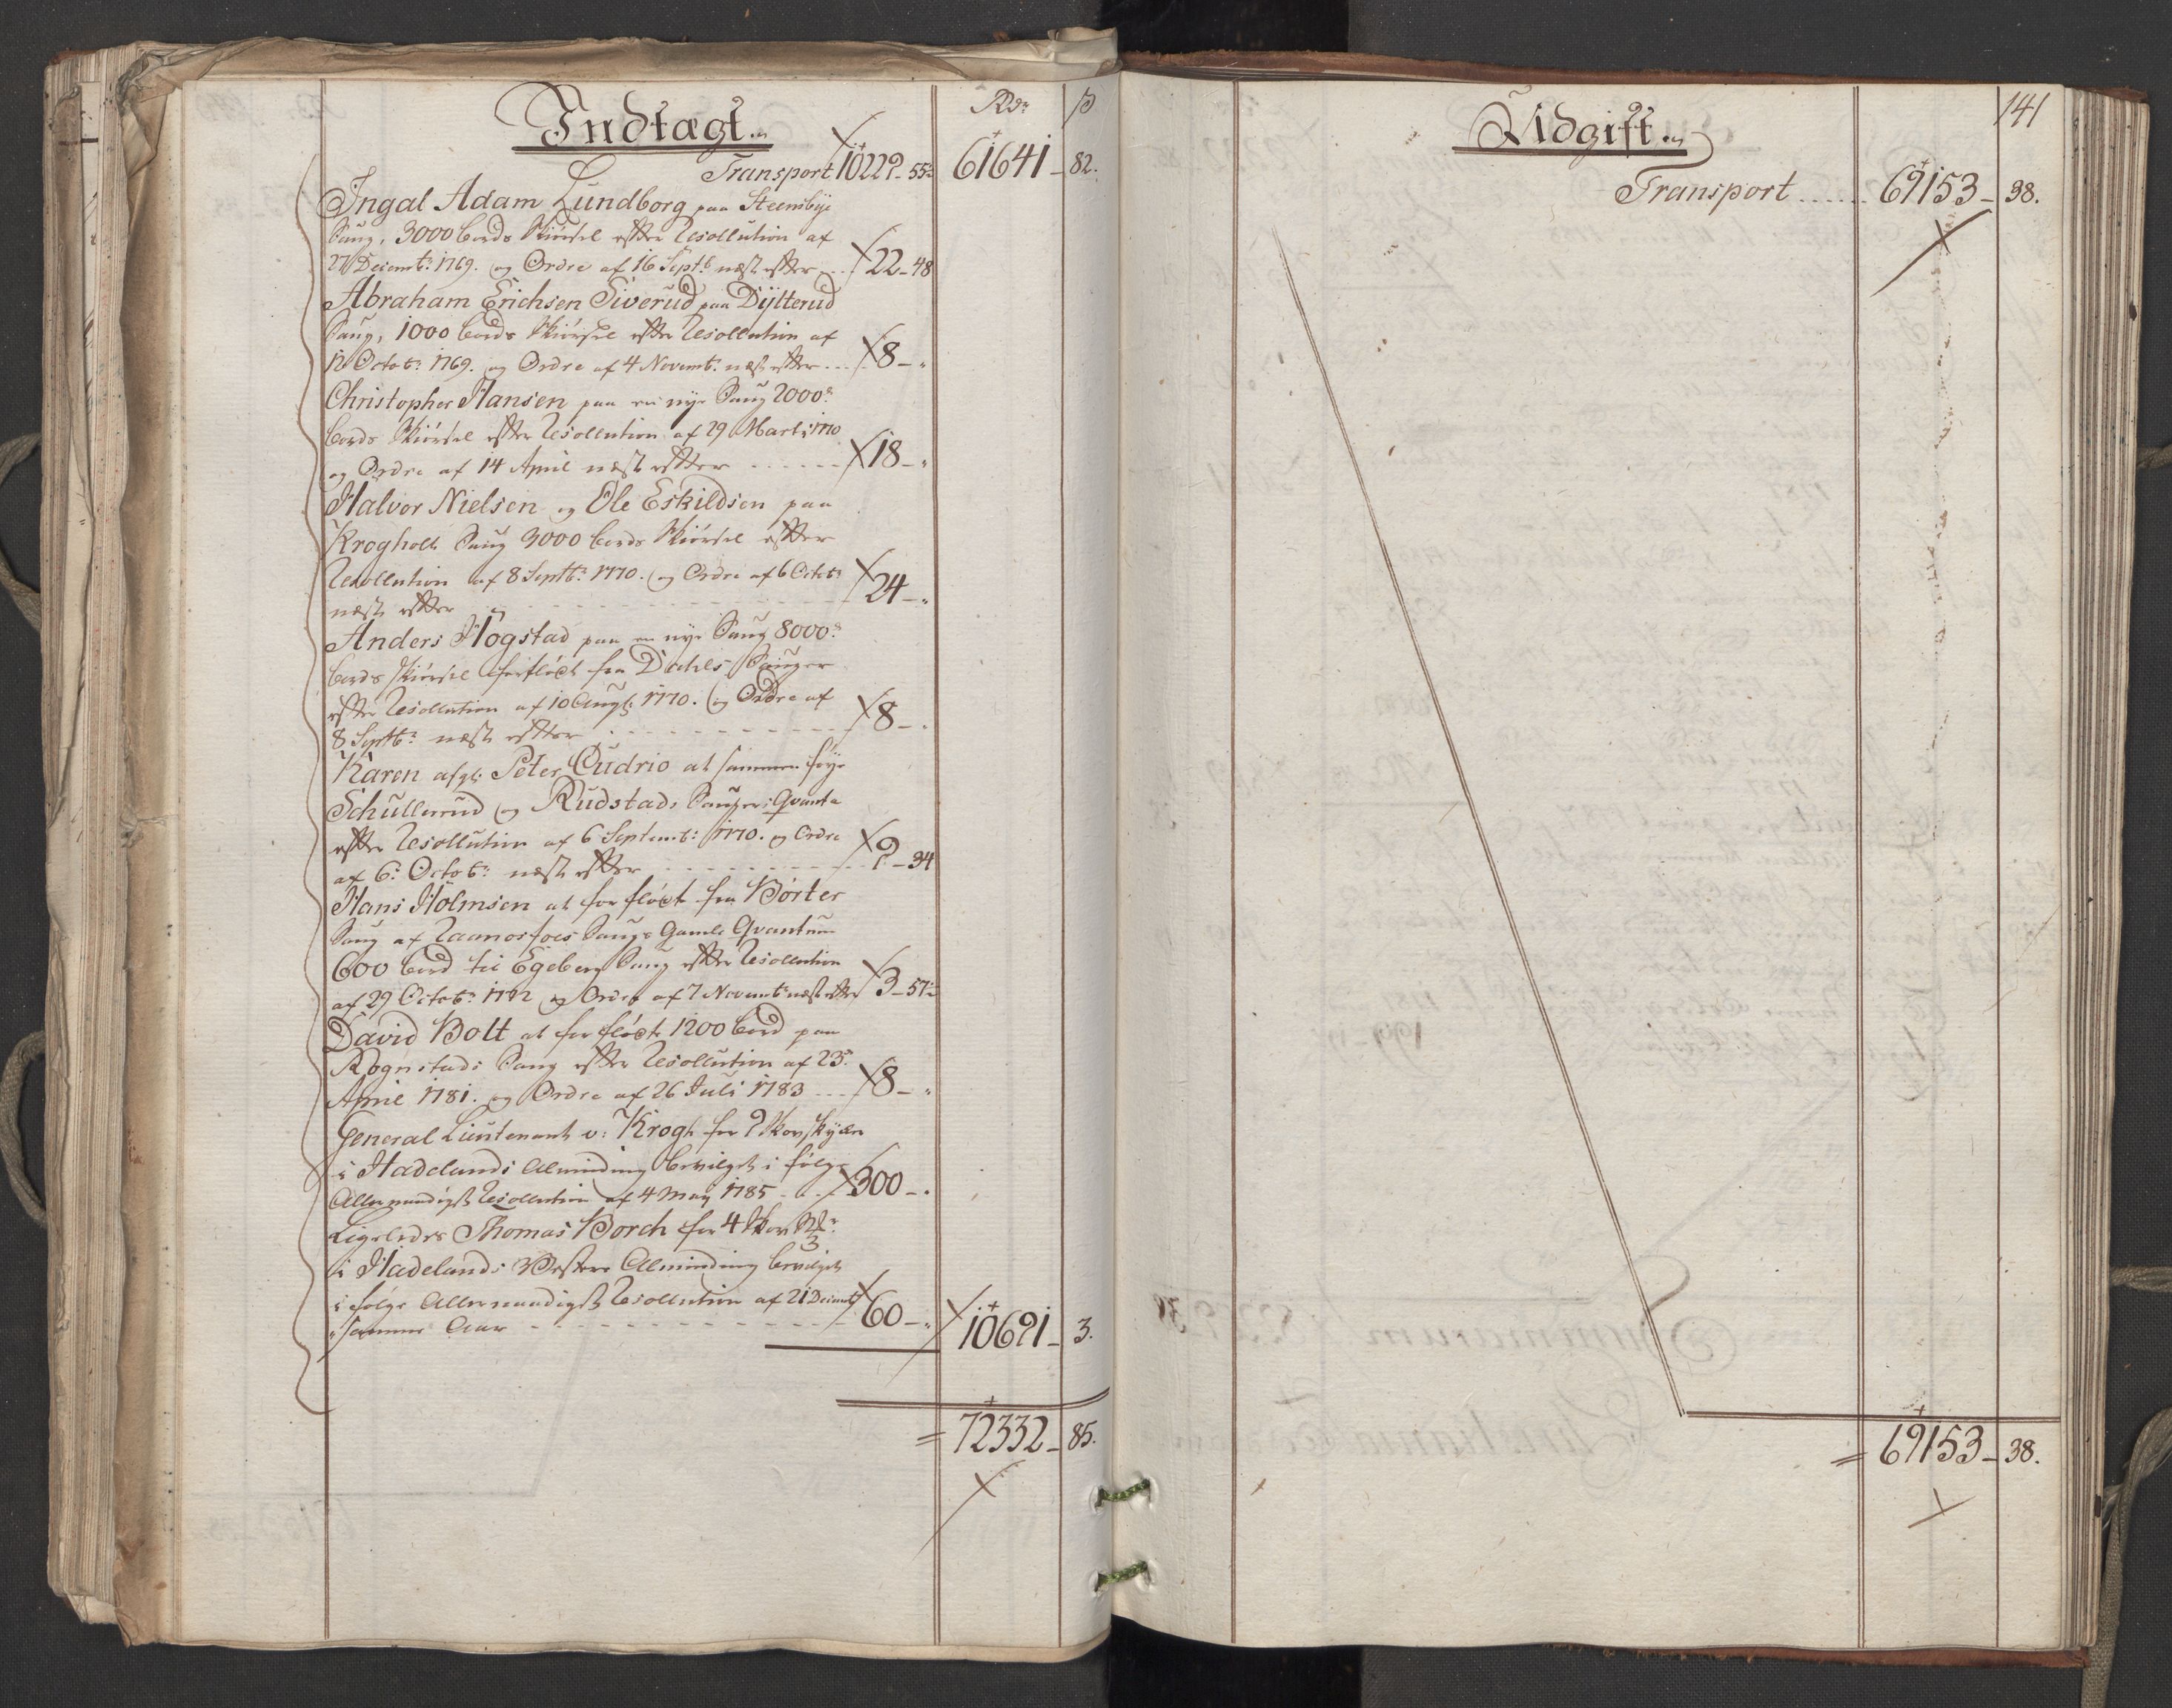 Indtægt
Rdr ß
Transport 10229-55½ 61641-82.
Ingal Adam Lundborg paa Steensbye
Saug, 3000 bords Skiørsel efter Resollution af
27 Decembr: 1769. og Ordre af 16 Septb: næst efter ... 22-48
Abraham Erichsen Siverud paa Dÿtterud
Saug, 1000 bords Skiørsel efter Resollution af
12 Octobr: 1769. og Ordre af 4 Novemb: næst efter ... 8-"
Christopher Hansen paa en nye Saug 2000de
bords Skiørsel efter Resollution af 29 Marti 1770
og Ordre af 14 April næst efter ------ 18-"
Halvor Nielsen og Ole Eskildsen paa
Krogholt Saug 3000 bords Skiørsel efter
Resollution af 8 Septbr: 1770. og Ordre af 6 Octobr
næst efter ------ 24-"
Anders Hogstad paa en nye Saug 8000de
bords Skiørsel forfløt fra Dahls Sauger
efter Resollution af 10 Aug: 1770. og Ordre af
8 Septbr: næst efter ------ 8-"
Karen afgl: Peter Cudrio at sammenføye
Schullerud og Rudstads Saugers Qvanta
efter Resollution af 6 Septemb: 1770. og Ordre
af 6: Octob: næst efter ------ 9-34
Hans Holmsen at forfløt fra Börter
Saug af Raanosfoes Saugs Gamle Qvantum
600 bord til Egeberg Saug efter Resollution
af 29 Octobr: 1772 og Ordre af 7 Novembr næst efter 3-57½
David Bolt at forfløt 1200 bord paa
Rognstads Saug efter Resollution af 23de
April 1781. og Ordre af 26 Juli 1783 ... 8-"
General Lieutenant v: Krogh for 2 Skovskÿlder
i Hadelands Alminding bevilget i følge
Allernaadigst Resollution af 4 May 1785 ... 300-"
Ligeledes Thomas Borch for 4 Skov
i Hadelands Vestere Alminding bevilget
i følge Allernaadigst Resollution af 21 Decemb
samme Aar ------ 60-" 10691-3.
= 72332-85.
141
Udgift
Transport ...... 69153-38.
= 69153-38.